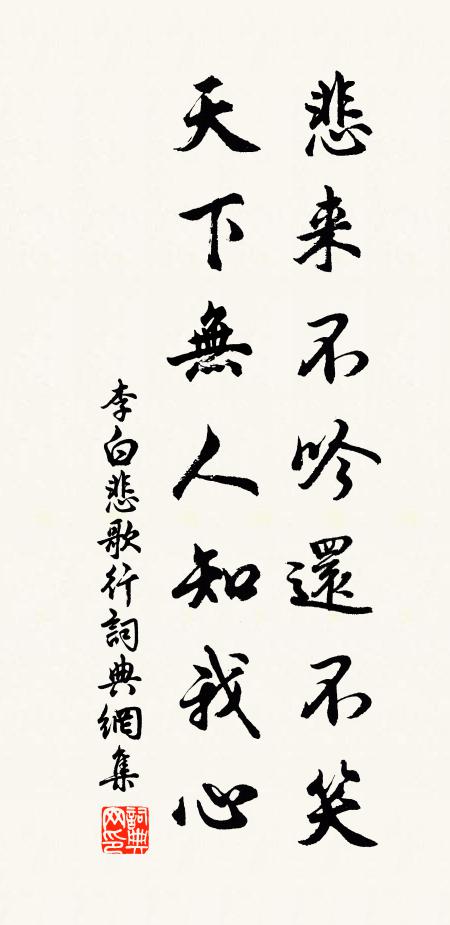 悲来不吟還不笑
天下無人知我心
李白悲歌行詞典網集
詞典网印